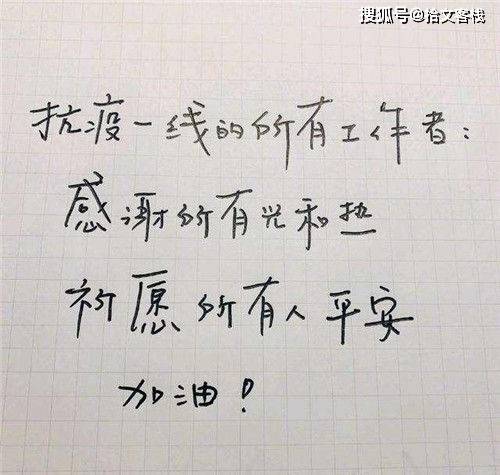 搜狐号@拾文客栈
抗疫一线的所有工作者：
感谢所有光和热
祈愿所有人平安
加油！